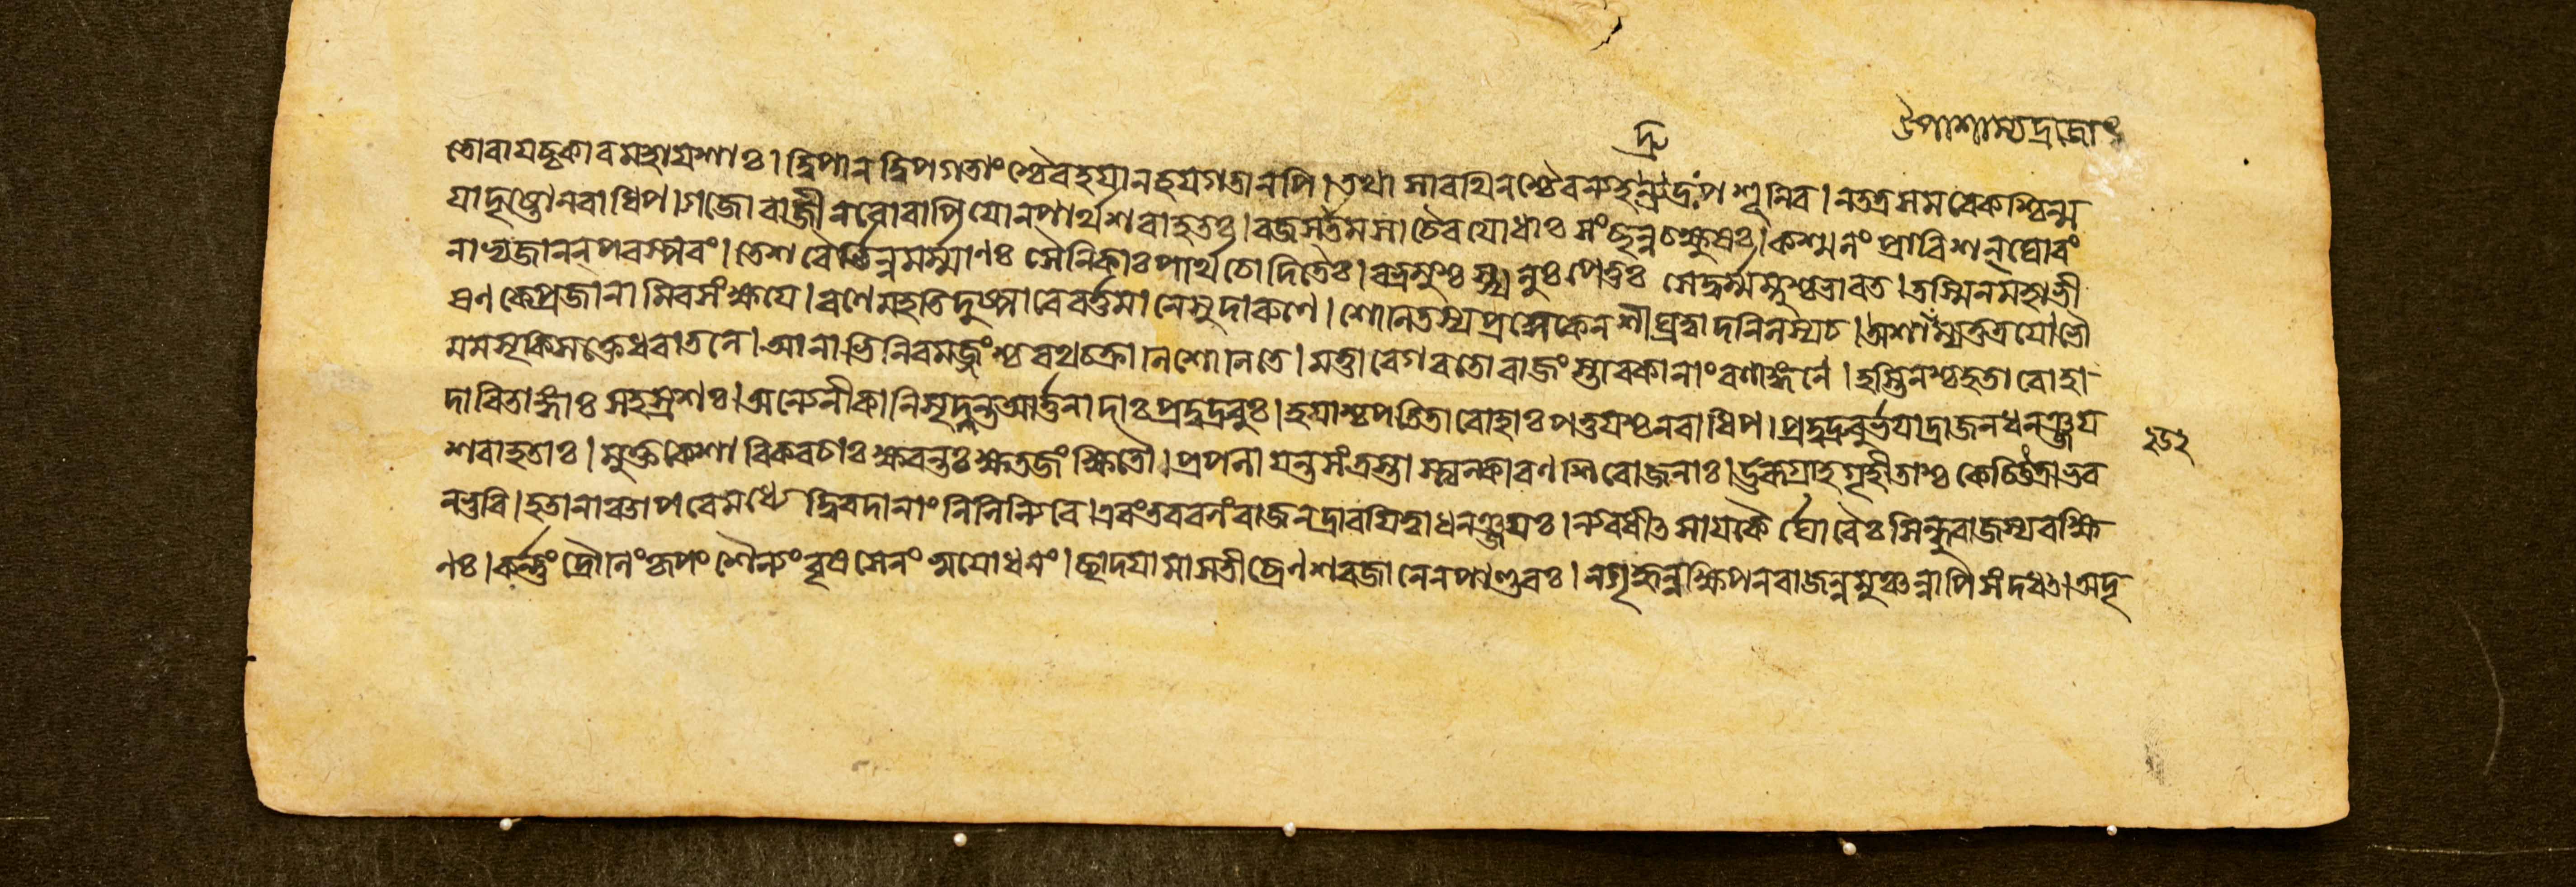 ঔপাশাম্যদ্রজো
দ্রু
তোবাযচ্চকারমহাযশাঃ। দ্বিপান্ দ্বিপগতাংশ্চৈবহযান্ হযগতানপি। তথা সারথিনশ্চৈবন্যহন্ রুদ্রঃপশূনিব। নতত্রসমরেকশ্চিন্ম
যাদৃষ্টোনরাধিপ। গজো বাজী নরোবাপি যোনপার্থশরাহতঃ। রজসাতমসা চৈব যোধাঃ সংছন্নচক্ষুষঃ। কশ্মলং প্রাবিশন্ ঘোরং
নান্বজানন্পরস্পরং। তেশরৈর্ভিন্নমর্ম্মাণঃ সৈনিকাঃপার্থচোদিতৈঃ। বভ্রমুশ্চস্খলুঃ পেতুঃ সেদুর্মম্লুশ্চভারত। তস্মিন্মহাভী
ষণকেপ্রজানামিবসংক্ষযে। রণে মহতিদুষ্পারেবর্ত্তমানেসুদারুণে। শোণিতস্যপ্রসেকেনশীঘ্রত্বাদনিলস্যচ। অশাম্যত্তত্রযোভৌ
মমসৃক্সিক্তেধরাতলে। আনাভিনিরমজ্জংশ্চরথচক্রাণিশোণিতে। মত্তাবেগবতোরাজংস্তাবকানাংরণাঙ্গনে। হস্তিনশ্চহতারোহা
দারিতাঙ্গাঃ সহস্রশঃ। অন্যেনীকানিমৃদ্নন্তআর্ত্তনাদাঃপ্রদুদ্রুবুঃ। হযাশ্চপতিতারোহাঃ পত্তযশ্চনরাধিপ। প্রদুদ্রুবুর্ভযাদ্রাজন্ধনঞ্জয
শরাহতাঃ। মুক্তকেশা বিকবচাঃ ক্ষরন্তঃক্ষতজং ক্ষিতৌ। প্রপলাযন্তসংত্রস্তা স্ত্যক্ত্বারণশিরোজনাঃ। উরুগ্রাহগৃহীতাশ্চ কেচিত্তত্রাভব
ন্ভুবি। হতানাংচাপরেমধ্যে দ্বিরদানাং নিলিল্যিরে। এবংতববলংরাজন্দ্রাবযিত্বাধনঞ্জযঃ। ন্যবধীৎ সাযকৈ র্ঘোরৈঃ সিন্ধুরাজস্যরক্ষি
ণঃ। কর্ণং দ্রৌণিংকৃপং শৈল্যং বৃষসেনং সুযোধনং। ছাদযামাসতীব্রেণশরজালেনপাণ্ডবঃ। নগৃহ্নন্নক্ষিপন্রাজন্নমুঞ্চন্নাপিসংদধৎ। অদৃ